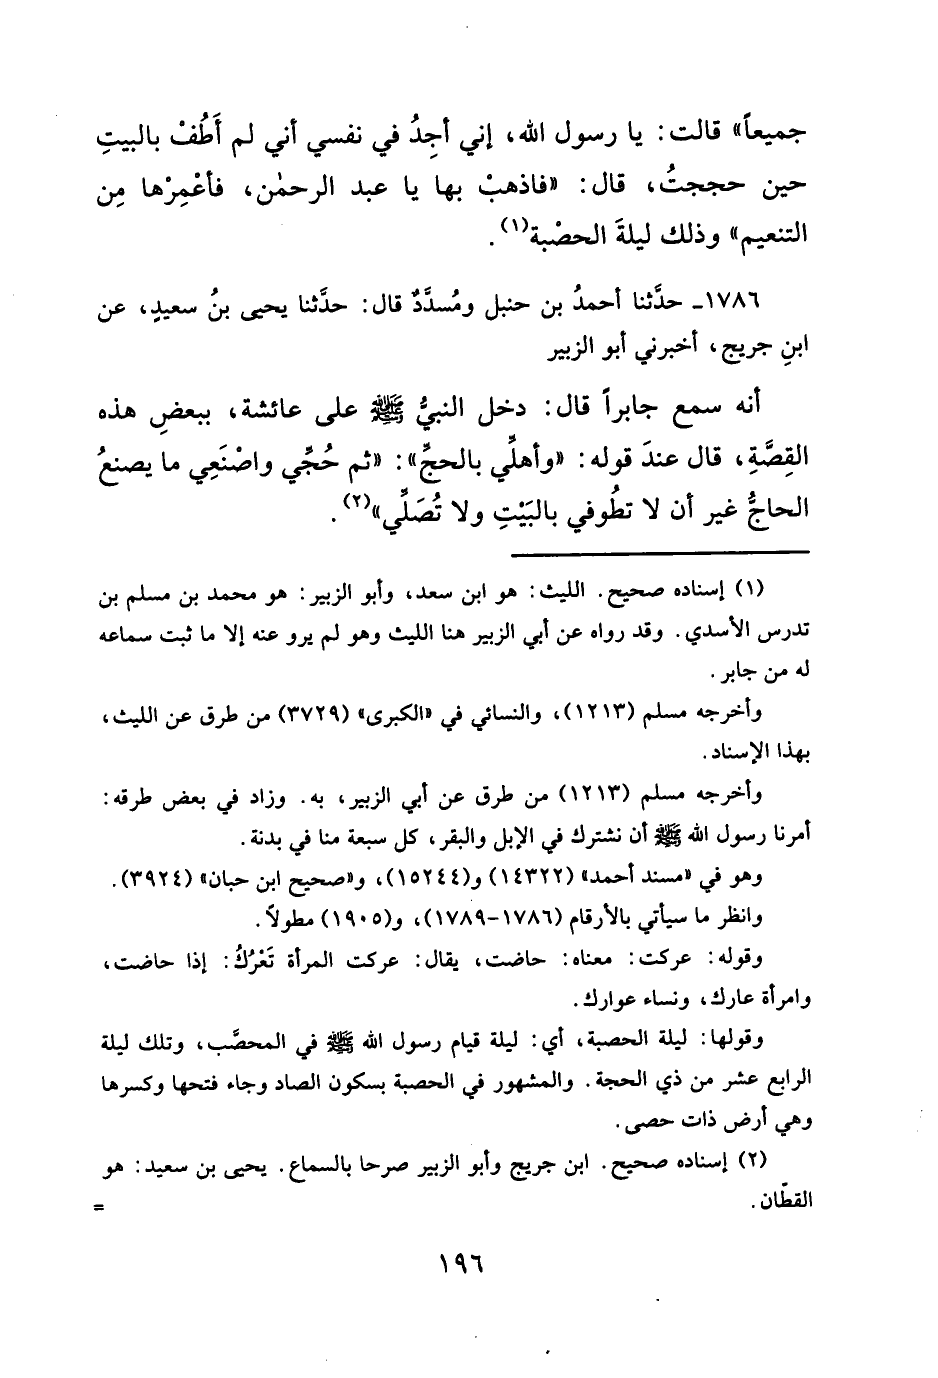 جميعاً» قالت: يا رسول الله، إني أجِدُ في نفسي أني لم أَطُفْ بالبيتِ
حين حججتُ، قال: «فاذهبْ بها يا عبد الرحمٰن، فأعْمِرْها مِن
التنعيم» وذلك ليلةَ الحصْبة(١).
١٧٨٦ـ حدَّثنا أحمدُ بن حنبل ومُسدَّدٌ قال: حدَّثنا يحيى بنُ سعيدٍ، عن
ابنِ جريج، أخبرني أبو الزبير
أنه سمع جابراً قال: دخل النبيُّ ﷺ على عائشة، ببعضِ هذه
القِصَّةِ، قال عندَ قوله: «وأهلِّي بالحجِّ»: «ثم حُجِّي واصْنَعِي ما يصنعُ
الحاجُّ غير أن لا تطُوفي بالبَيْتِ ولا تُصَلِّي»(٢).
(١) إسناده صحيح. الليث: هو ابن سعد، وأبو الزبير: هو محمد بن مسلم بن
تدرس الأسدي. وقد رواه عن أبي الزبير هنا الليث وهو لم يرو عنه إلا ما ثبت سماعه
له من جابر.
وأخرجه مسلم (١٢١٣)، والنسائي في «الكبرى» (٣٧٢٩) من طرق عن الليث،
بهذا الإسناد.
وأخرجه مسلم (١٢١٣) من طرق عن أبي الزبير، به. وزاد في بعض طرقه:
أمرنا رسول الله ﷺ أن نشترك في الإبل والبقر، كل سبعة منا في بدنة.
وهو في «مسند أحمد» (١٤٣٢٢) و(١٥٢٤٤)، و«صحيح ابن حبان» (٣٩٢٤).
وانظر ما سيأتي بالأرقام (١٧٨٦-١٧٨٩)، و(١٩٠٥) مطولاً.
وقوله: عركت: معناه: حاضت، يقال: عركت المرأة تَعْرُكُ: إذا حاضت،
وامرأة عارك، ونساء عوارك.
وقولها: ليلة الحصبة، أي: ليلة قيام رسول الله ﷺ في المحصَّب، وتلك ليلة
الرابع عشر من ذي الحجة. والمشهور في الحصبة بسكون الصاد وجاء فتحها وكسرها
وهي أرض ذات حصى.
(٢) إسناده صحيح. ابن جريج وأبو الزبير صرحا بالسماع. يحيى بن سعيد: هو
القطّان.
=
١٩٦